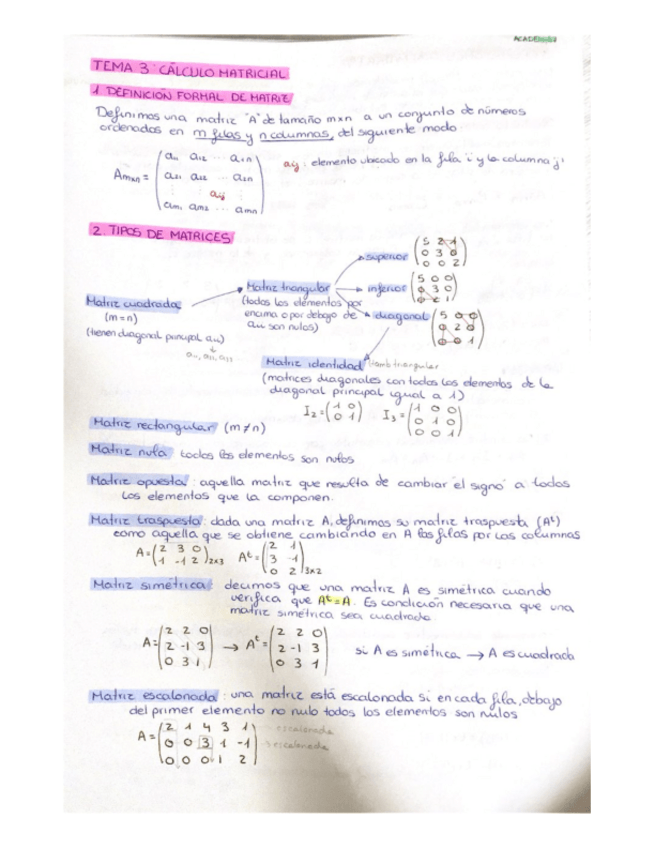 TEMA 3: CÁLCULO MATRICIAL
1 DEFINICIÓN FORMAL DE MATRIZ
Definimos una matriz "A" de tamaño mxn a un conjunto de números
ordenados en m filas y n columnas, del siguiente modo
Amxn = (a11 a12 ... a1n
a21 a22 ... a2n
aij
am1 am2 ... amn)
aij: elemento ubicado en la fila "i" y la columna "j"
2. TIPOS DE MATRICES
Matriz cuadrada
(m=n)
(tienen diagonal principal aii)
a11, a22, a33
Matriz triangular
(todos los elementos por
encima o por debajo de
aii son nulos)
superior (5 2 1
0 3 0
0 0 2)
inferior (5 0 0
3 0
1)
diagonal (5 0 0
0 2 0
0 0 1)
Matriz identidad
(matrices diagonales con todos los elementos de la
diagonal principal igual a 1)
I2=(1 0
0 1)
I3=(1 0 0
0 1 0
0 0 1)
Matriz rectangular (m≠n)
Matriz nula todos los elementos son nulos
Matriz opuesta: aquella matriz que resulta de cambiar "el signo" a todos
los elementos que la componen.
Matriz traspuesta: dada una matriz A, definimos su matriz traspuesta (Aᵗ)
como aquella que se obtiene cambiando en A las filas por las columnas
A=(2 3 0
1 -1 2)2x3
Aᵗ=(2 1
3 -1
0 2)3x2
Matriz simétrica: decimos que una matriz A es simétrica cuando
verifica que Aᵗ=A. Es condición necesaria que una
matriz simétrica sea cuadrada.
A=(2 2 0
2 -1 3
0 3 1)
→ Aᵗ=(2 2 0
2 -1 3
0 3 1)
si A es simétrica → A es cuadrada
Matriz escalonada: una matriz está escalonada si en cada fila, debajo
del primer elemento no nulo todos los elementos son nulos
A=(2 1 4 3 1
0 0 3 1 -1
0 0 0 1 2)
escalonada
escalonada